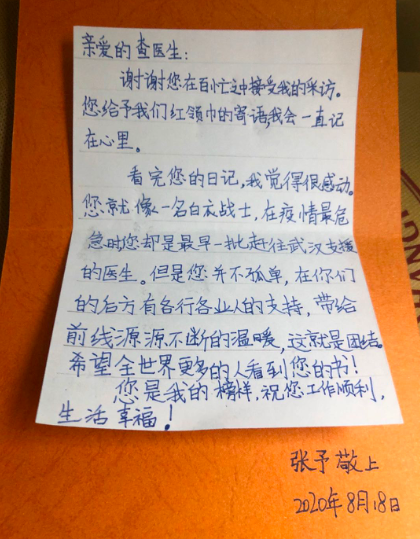 亲爱的查医生:
谢谢您在百忙之中接受我的采访。
您给予我们红领巾的寄语,我会一直记
在心里。
看完您的日记,我觉得很感动。
您就像一名白衣战士,在疫情最危
急时您却是最早一批赶往武汉支援
的医生。但是您并不孤单,在你们
的后方有各行各业人的支持,带给
前线源源不断的温暖,这就是团结。
希望全世界更多的人看到您的书!
您是我的榜样,祝您工作顺利,
生活幸福!
张予敬上
2020年8月18日